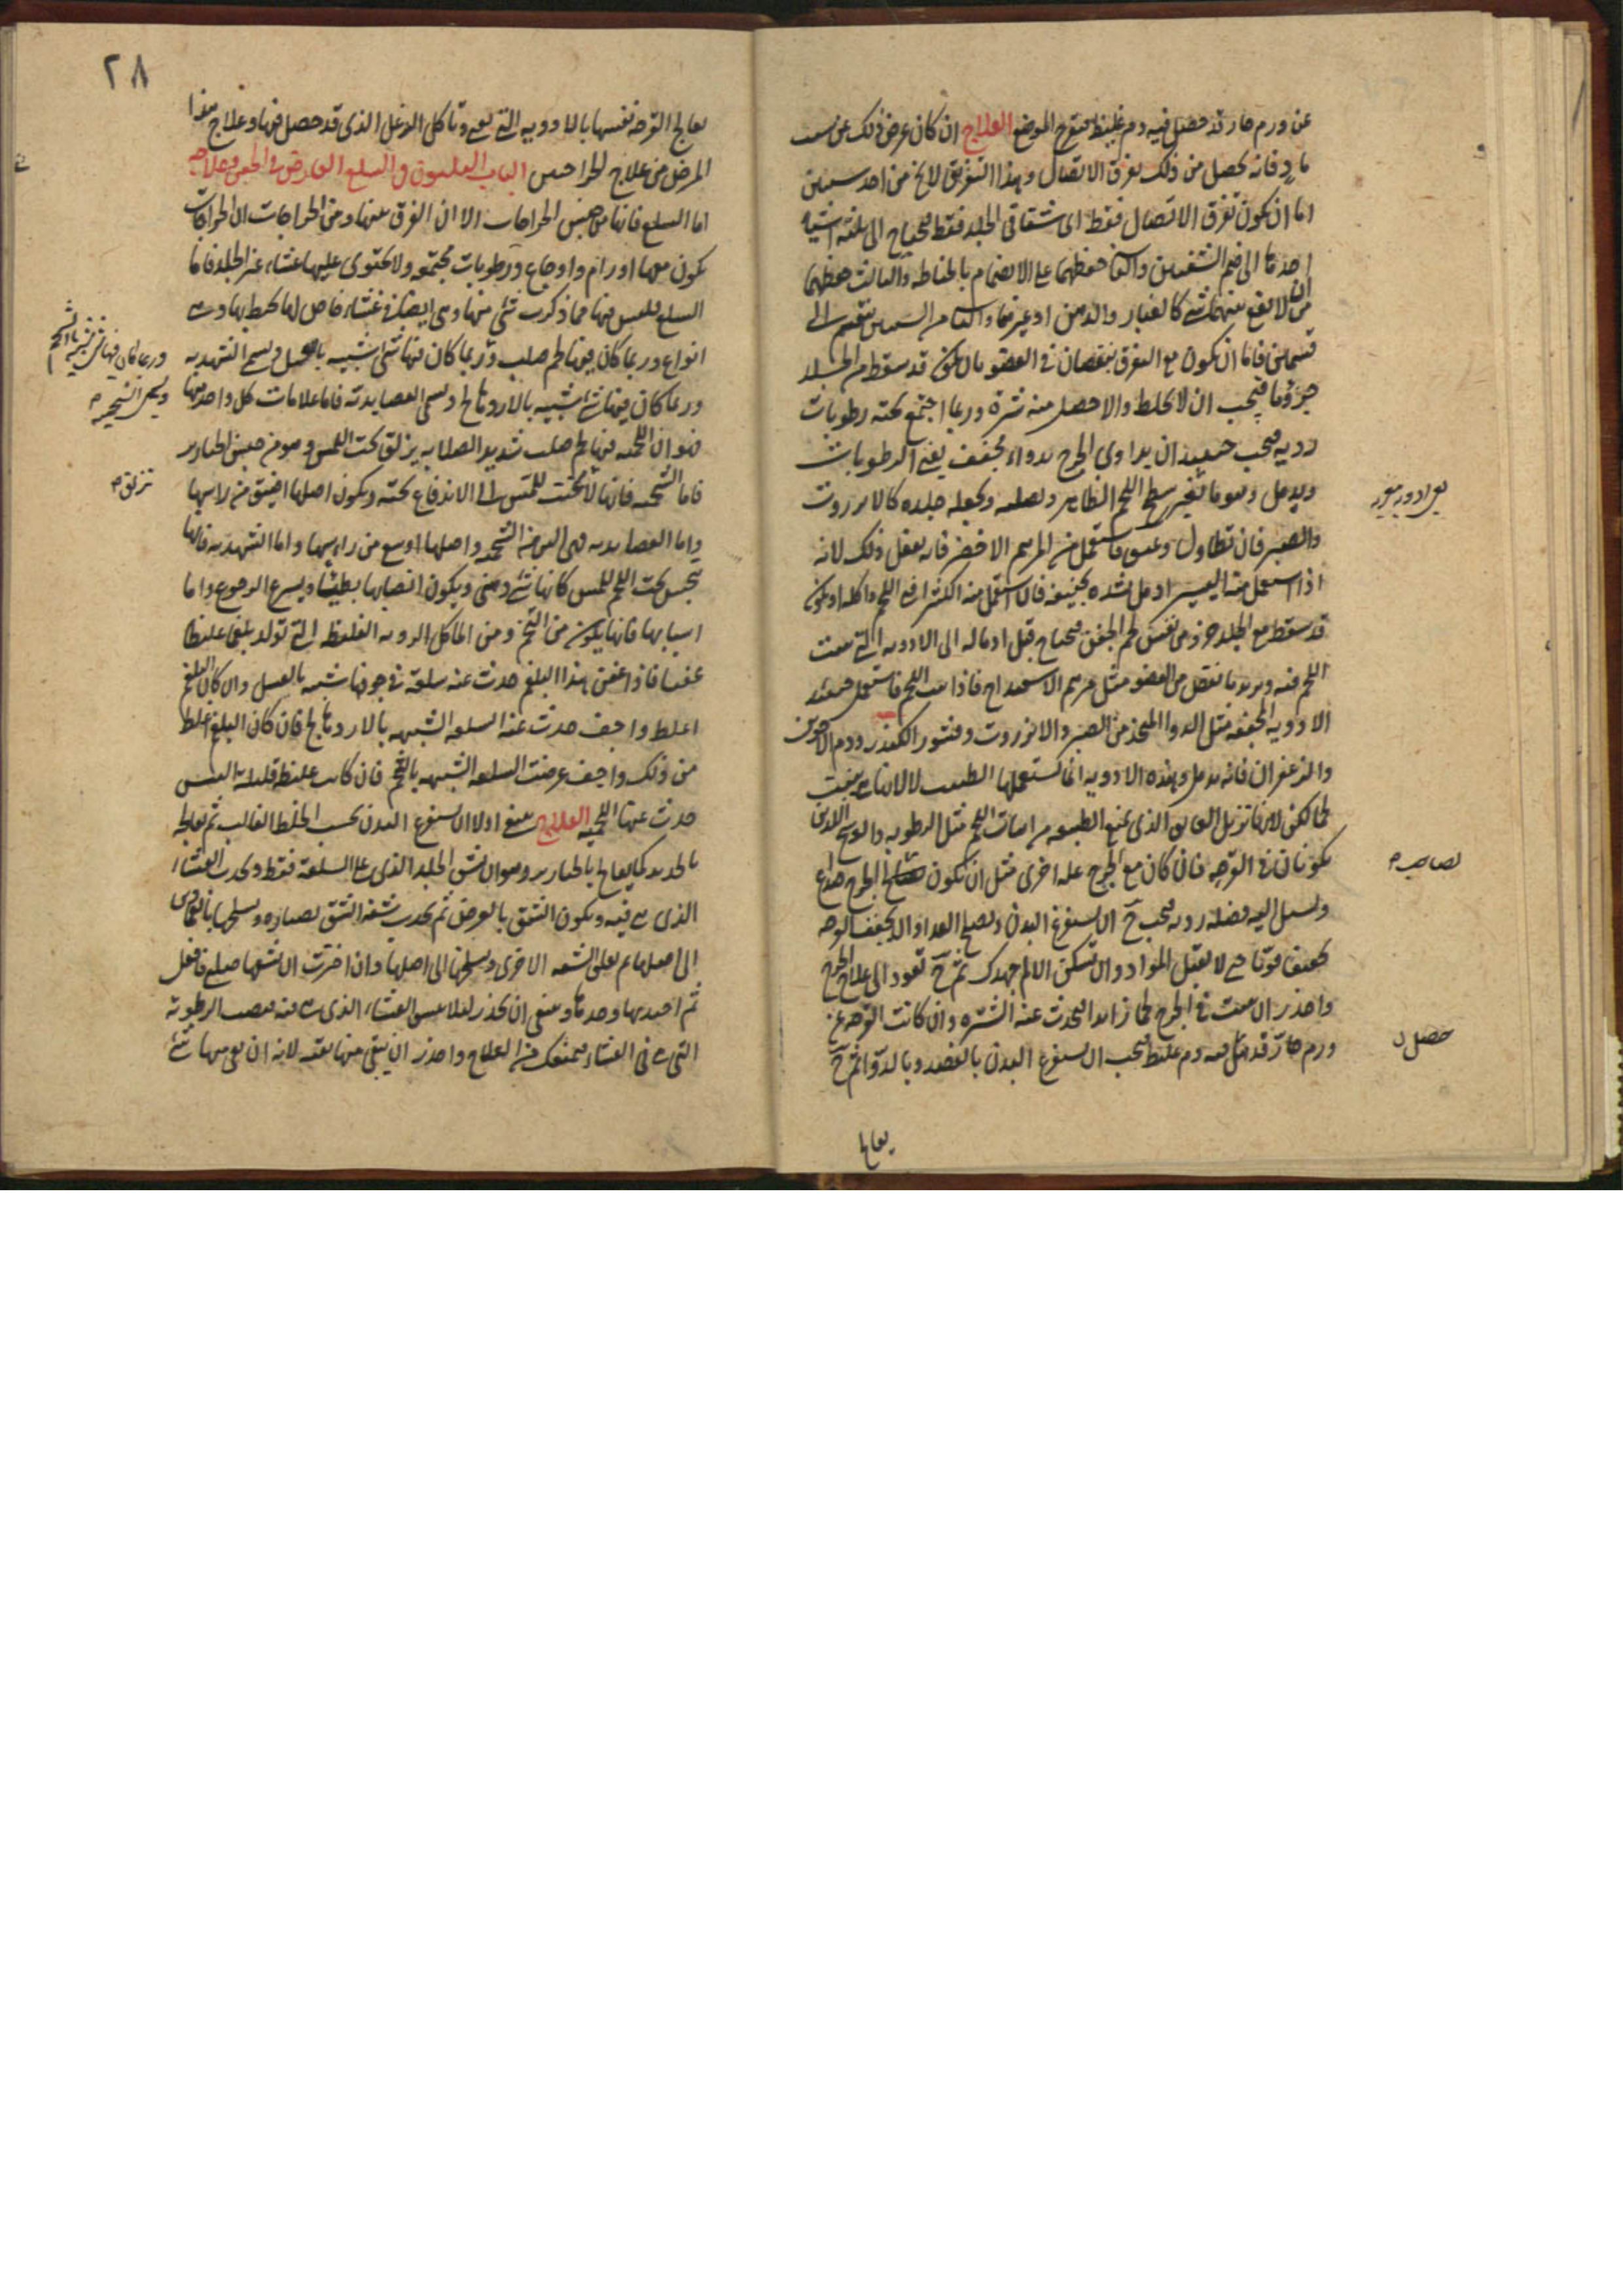 عن ورم حار قد حصل فيه دم غليظ فتقرح الموضع العلاج ان كان عرض ذلك عن سبب
باد فانه يحصل من ذلك تفرق الاتصال وهذا التفريق لا يخ من احد سببين
اما ان يكون تفرق الاتصال فقط اى شقا فى الجلد فقط فيحتاج الى ثلثة اشياء
احدها الى ضم الشفتين والثانى حفظهما على الانضمام بالخياطه والثالث حفظهما
من ان لا يقع بينهما شئ كالغبار والدهن او غيرهما والثانى من السببين ينقسم الى
قسمين فاما ان يكون مع التفرق نقصان فى العضو بان يكون قد سقط من الجلد
جزؤ ما فيجب ان لا يخاط والا حصل منه شترة وربما اجتمع تحته رطوبات
رديه فيجب حينئذ ان يداوى الجرح بدواء مجفف يفنى الرطوبات
ويدمل وهو ما يغير سطح اللحم الظاهر ويصلبه ويجعله جلده كالانزروت
والصبر فان تطاول وعسر فاستعمل من المرهم الاخضر فانه يفعل ذلك لانه
اذا استعمل منه اليسير ادمل لشدة تجفيفه فان استعمل منه الكثير اذاب اللحم واكله او يكون
قد سقط مع الجلد جزء من نفس لحم الجفن فيحتاج قبل ادماله الى الادويه التى تنبت
اللحم فيه ويزيد ما نقص من العضو مثل مرهم الاسفيداج فاذا نبت اللحم فاستعمل حينئذ
الادويه المجففه مثل الدوا المتخذ من الصبر والانزروت وقشور الكندر ودم الاخوين
والزعفران فانه يدمل وهذه الادويه انما يستعملها الطبيب لا لانها تنبت
لحما لكن لانها تزيل العايق الذى يمنع الطبيعه من انبات اللحم مثل الرطوبه والوسخ اللذين
يكونان فى القرحه فان كان مع الجرح علة اخرى مثل ان يكون الجرح صداع
ويسيل اليه فضله رديه فيجب ح ان يستفرغ البدن ويصلح الغذاء والا يجفف القرحه
تجفيفا قويا حتى لا يقبل المواد وان تسكن الالم جهدك ثم ح تعود الى علاج الجرح
واحذر ان ينبت فى الجرح لحما زايدا فيحدث عنه الشتره وان كانت القرحه عن
ورم حار قد حصل فيه دم غليظ فيجب ان يستفرغ البدن بالفصد وبالدوا ثم ح
يعالج
حصل ن
٢٨
يعالج القرحه نفسها بالادويه التى تنقى وتاكل الدغل الذى قد حصل فيها وعلاج هذا
المرض من علاج الجراحين الباب الثلثون فى السلع العارض فى الجفن وعلاجه
اما السلع فانها من جنس الخراجات الا ان الفرق بينها وبين الخراجات ان الخراجات
يكون معها اورام واوجاع ورطوبات مجتمعه ولا يحتوى عليها غشاء غير الجلد فاما
السلع فليس فيها مما ذكرت شئ منها وهى ايضا فى غشاء خاص لها يحيط بها وهى
انواع وربما كان فيها لحم صلب وربما كان فيها شئ شبيه بالعسل ويسمى الشهديه
وربما كان فيها شئ شبيه بالاردهالج ويسمى العصايديه فاما علامات كل واحد منها
فهو ان اللحميه فيها لحم صلب شديد الصلابه يزلق تحت اللمس وهو من جنس الخنازير
فاما الشحميه فانها لا تجيب للمس الى الاندفاع تحته ويكون اصلها اضيق من راسها
واما العصايديه فهى الين من الشحميه واصلها اوسع من راسها واما الشهديه فانها
تحس تحت اللحم للمس كانها شئ دهنى ويكون انصبابها بطيئا ويسرع الرجوع واما
اسبابها فانها يكون من التخم ومن الماكل الرديه الغليظه التى تولد بلغما غليظا
عفنا فاذا عفن هذا البلغم حدث عنه سلعة فى جوفها شبيه بالعسل وان كان البلغم
اغلظ واجف حدث عنه السلعه الشبيهه بالاردهالج فان كان البلغم اغلظ
من ذلك واجف عرضت السلعه الشبيهه بالشحم فان كانت غليظه قليلة اليبس
حدث عنها اللحميه العلاج ينبغى اولا ان يستفرغ البدن بحسب الخلط الغالب ثم يعالج
بالحديد كما يعالج بالخنازير وهو ان تشق الجلد الذى على السلعة فقط ويحذر الغشاء
الذى هى فيه ويكون الشق بالعرض ثم تجذب شفه الشق بصناره وتسلخها بالقمادين
الى اصلها ثم تعلق الشفه الاخرى وتسلخها الى اصلها وان اخترت ان تشقها صليبا فافعل
ثم اجذبها وحدها وينبغى ان تحذر ليلا ينبس الغشاء الذى هى فيه فتصب الرطوبة
التى هى فى الغشاء فيمنعك من العلاج واحذر ان يبقى منها بقيه لانه ان بقى منها شئ
وربما كان فيها شئ شبيه بالشحم
ويسمى الشحميه م
تزلق م